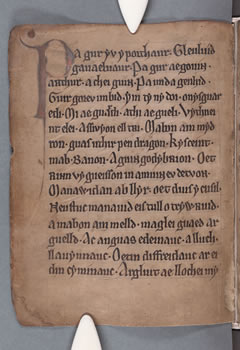 Pa gur yv y porthaur. Gleuluid
gauaeluaur. Pa gur ae gouin.
arthur. a chei guin. Pa imda genhid.
Guir goreu im bid. Ym ty ny doi. onysguar
edi. Mi ae guardi. athi ae gueli. Vythneint
elei. Assivyon ell tri. Mabon am myd
ron. guas uthir pen dragon. Kysceint.
mab. Banon. A guin godybrion. Oet
rinn vy gueisson in amuin ev detvon.
Manawidan ab llyr. oet duis y cusil.
Neustuc manauid eis tull o trywruid.
a mabon am melld. maglei guaed ar
guelld. Ac anguas edeinauc. a lluch.
llauynnauc. Oetin diffreidauc ar ei
din cyminauc. Argluit ae llochei my